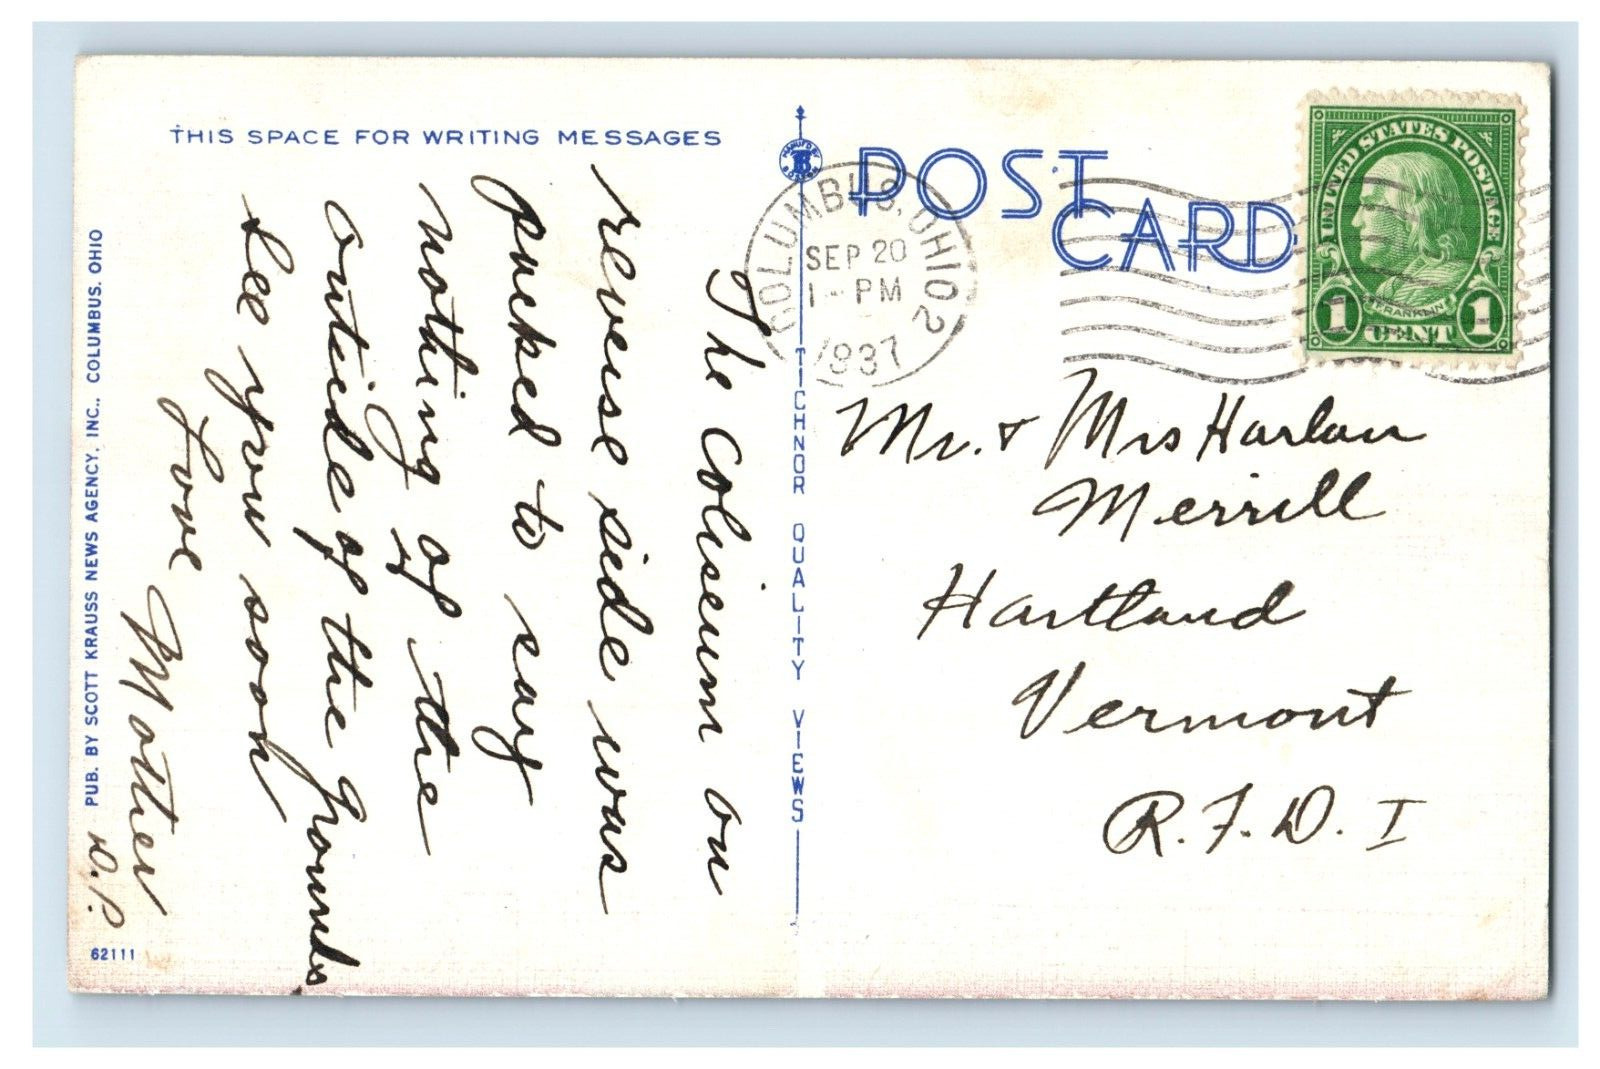 THIS SPACE FOR WRITING MESSAGES
The Coliseum on
reverse side was
packed to say
nothing of the
outside of the grounds
See you soon
Love
Mother
D.P.
PUB. BY SCOTT KRAUSS NEWS AGENCY, INC., COLUMBUS, OHIO
62111
MANUF'D BY
BOSTON
TICHNOR QUALITY VIEWS
POST CARD
COLUMBUS, OHIO 2
SEP 20
1 - PM
1937
UNITED STATES POSTAGE
FRANKLIN
1 CENT 1
Mr. & Mrs Harlan
Merrill
Hartland
Vermont
R.F.D. I